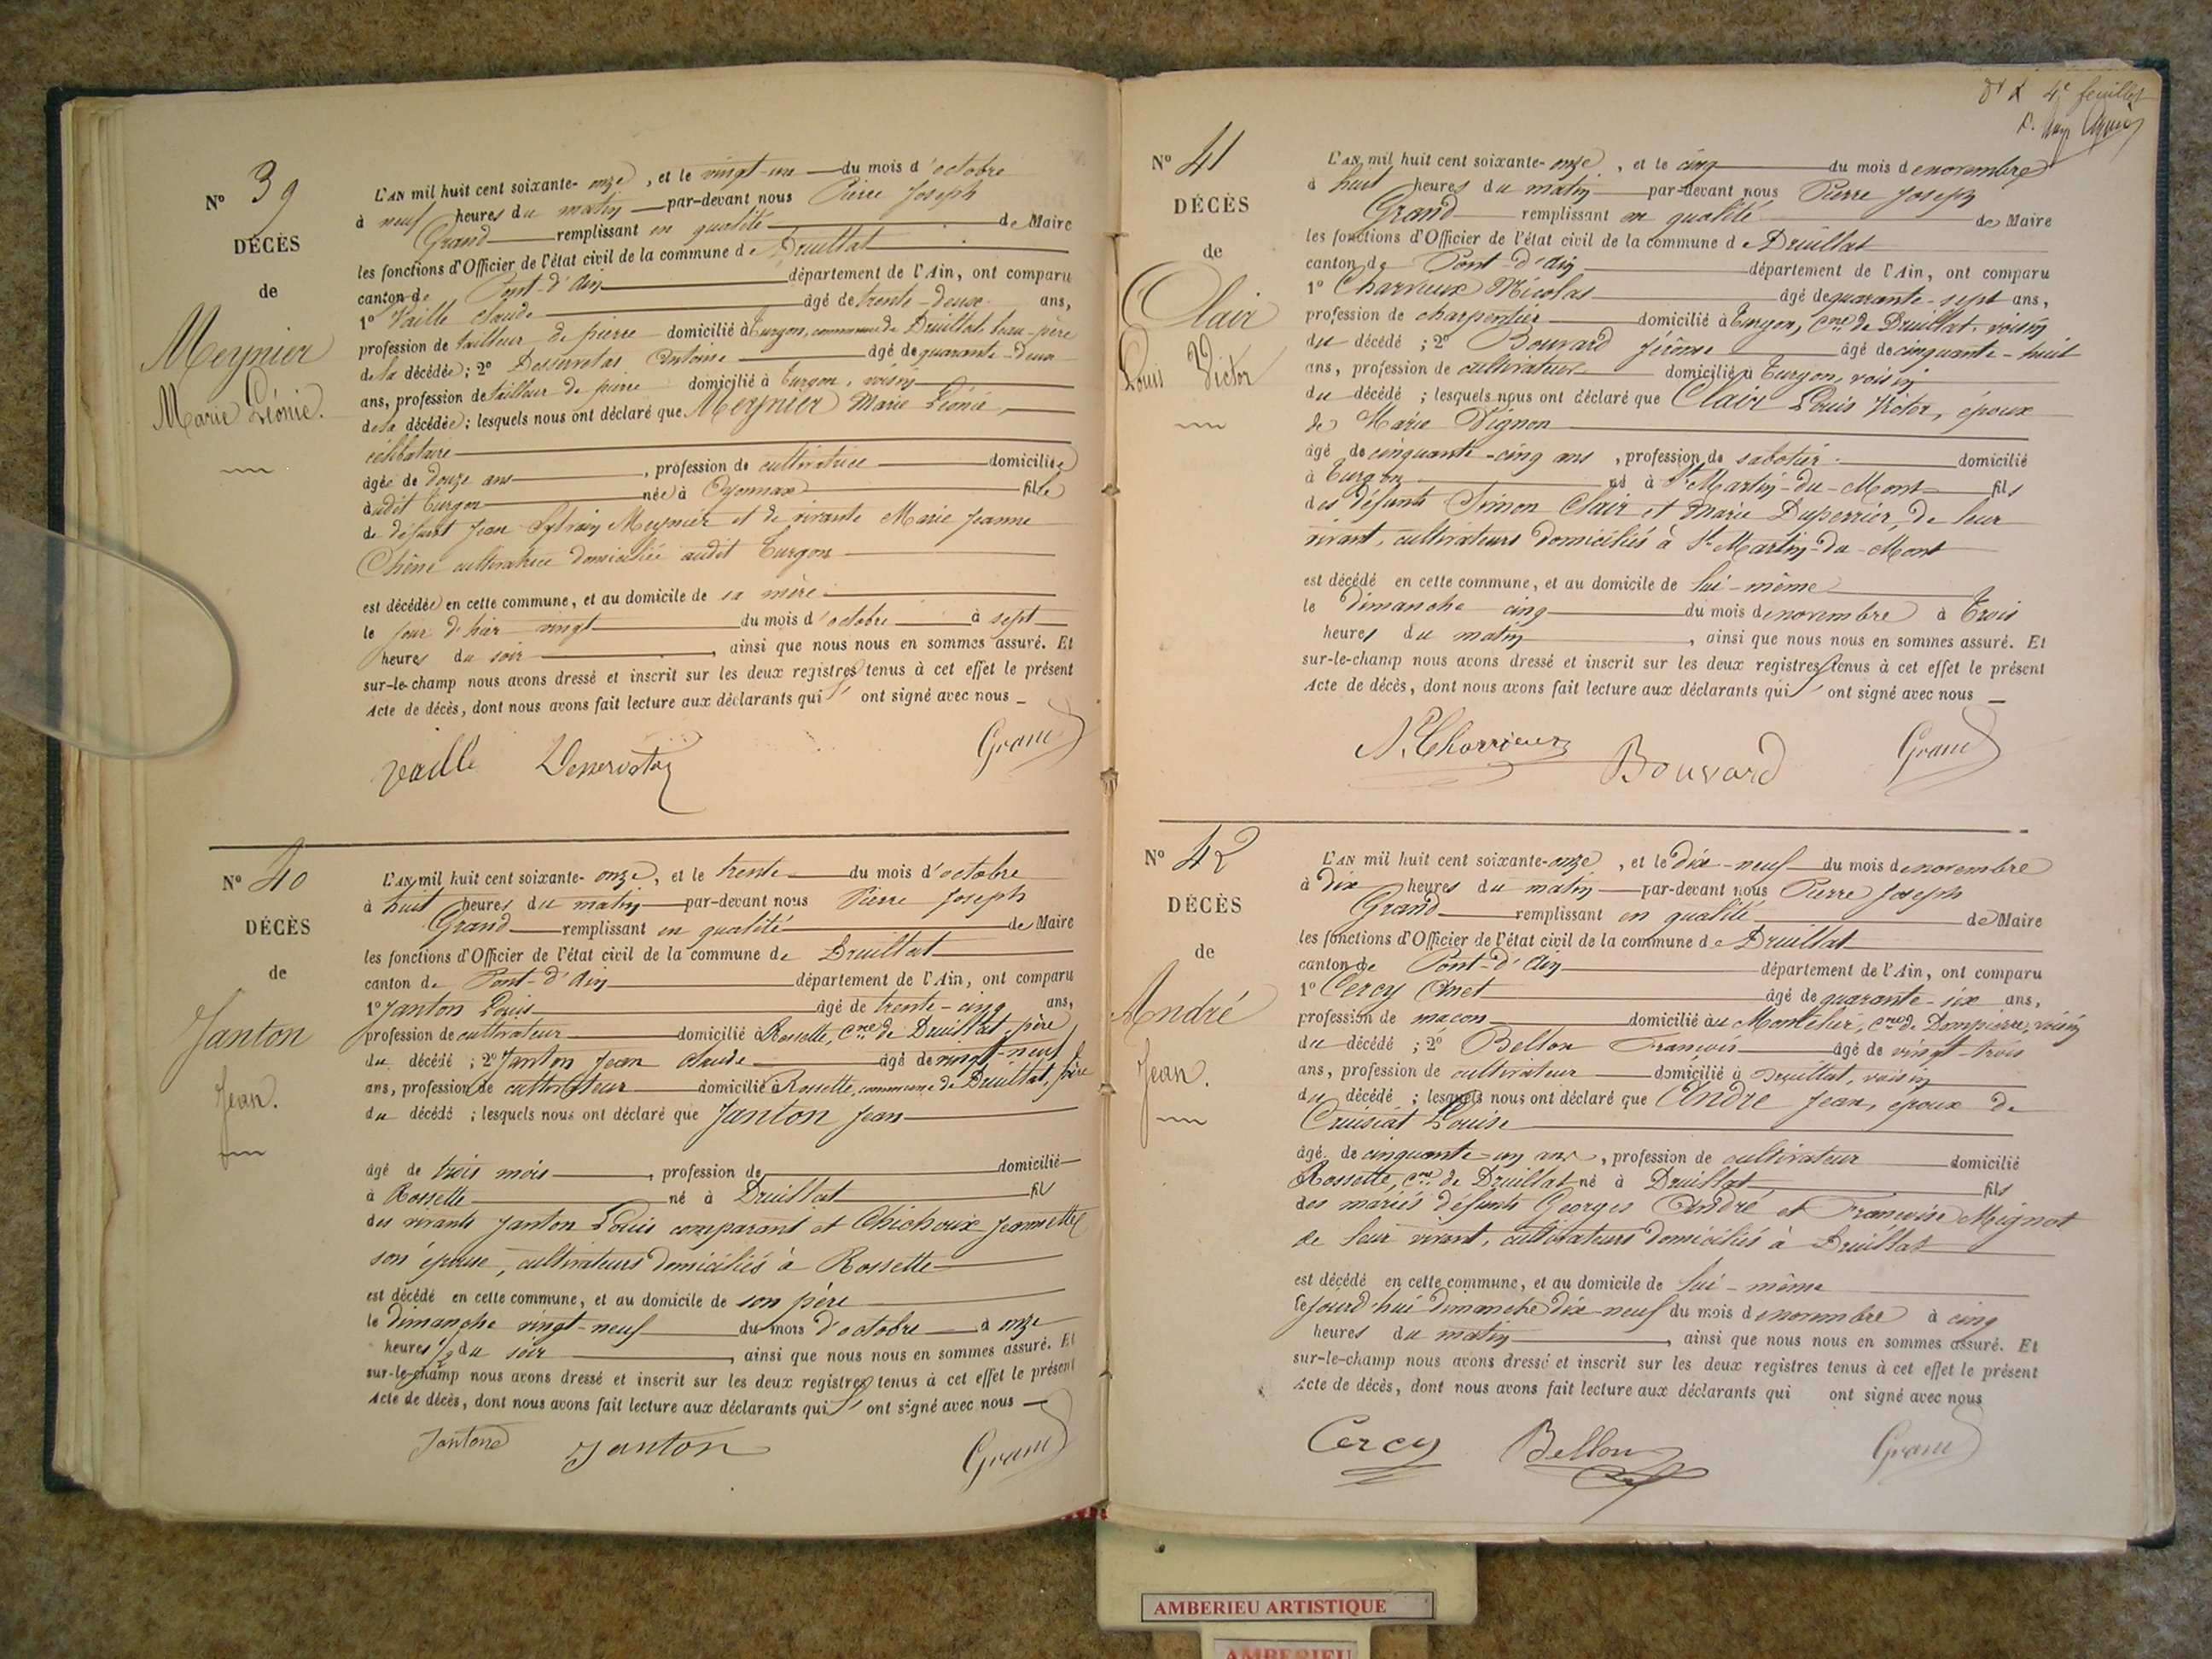 Nº 39
DÉCÈS
de
Meynier
Marie Léonie.
L'AN mil huit cent soixante- onze, et le vingt-un du mois d'octobre
à neuf heures du matin par-devant nous Pierre Joseph
Grand remplissant en qualité de Maire
les fonctions d'Officier de l'état civil de la commune de Druillat
canton de Pont-d'Ain département de l'Ain, ont comparu
1º Vaille Claude âgé de trente-deux ans,
profession de tailleur de pierre domicilié à Turgon, commune de Druillat, beau-père
de la décédée; 2º Desservetas Antoine âgé de quarante-deux
ans, profession de tailleur de pierre domicilié à Turgon, voisin
de la décédée; lesquels nous ont déclaré que Meynier Marie Léonie,
célibataire
âgée de douze ans, profession de cultivatrice domiciliée
audit Turgon née à Oyonnax fille
de défunt Jean Sylvain Meynier et de vivante Marie Jeanne
Chêne cultivatrice domiciliée audit Turgon
est décédée en cette commune, et au domicile de sa mère
le jour d'hier vingt du mois d'octobre à sept
heures du soir, ainsi que nous nous en sommes assuré. Et
sur-le-champ nous avons dressé et inscrit sur les deux registres tenus à cet effet le présent
Acte de décès, dont nous avons fait lecture aux déclarants qui ont signé avec nous
Vaille Desservetaz Grand
Nº 40
DÉCÈS
de
Janton
Jean.
L'AN mil huit cent soixante- onze, et le trente du mois d'octobre
à huit heures du matin par-devant nous Pierre Joseph
Grand remplissant en qualité de Maire
les fonctions d'Officier de l'état civil de la commune de Druillat
canton de Pont-d'Ain département de l'Ain, ont comparu
1º Janton Louis âgé de trente-cinq ans,
profession de cultivateur domicilié à Rossette, Cne de Druillat, père
du décédé; 2º Janton Jean Claude âgé de vingt-neuf
ans, profession de cultivateur domicilié à Rossette, commune de Druillat,
du décédé; lesquels nous ont déclaré que Janton Jean
âgé de trois mois, profession de domicilié
à Rossette né à Druillat fils
des vivants Janton Louis comparant et Chichoux Jeannette
son épouse, cultivateurs domiciliés à Rossette
est décédé en cette commune, et au domicile de son père
le dimanche vingt-neuf du mois d'octobre à onze
heures 1/2 du soir, ainsi que nous nous en sommes assuré. Et
sur-le-champ nous avons dressé et inscrit sur les deux registres tenus à cet effet le présent
Acte de décès, dont nous avons fait lecture aux déclarants qui ont signé avec nous
Janton Janton Grand
4e feuillet
Nº 41
DÉCÈS
de
Clair
Louis Victor
L'AN mil huit cent soixante- onze, et le cinq du mois de novembre
à huit heures du matin par-devant nous Pierre Joseph
Grand remplissant en qualité de Maire
les fonctions d'Officier de l'état civil de la commune de Druillat
canton de Pont-d'Ain département de l'Ain, ont comparu
1º Charvieux Nicolas âgé de quarante-sept ans,
profession de charpentier domicilié à Turgon, Cne de Druillat, voisin
du décédé; 2º Bouvard Jérôme âgé de cinquante-huit
ans, profession de cultivateur domicilié à Turgon, voisin
du décédé; lesquels nous ont déclaré que Clair Louis Victor, époux
de Marie Vignon
âgé de cinquante-cinq ans, profession de sabotier domicilié
à Turgon né à St Martin-du-Mont fils
des défunts Simon Clair et Marie Duperrier, de leur
vivant, cultivateurs domiciliés à St Martin-du-Mont
est décédé en cette commune, et au domicile de lui-même
le dimanche cinq du mois de novembre à Trois
heures du matin, ainsi que nous nous en sommes assuré. Et
sur-le-champ nous avons dressé et inscrit sur les deux registres tenus à cet effet le présent
Acte de décès, dont nous avons fait lecture aux déclarants qui ont signé avec nous
N. Charvieux Bouvard Grand
Nº 42
DÉCÈS
de
André
Jean.
L'AN mil huit cent soixante- onze, et le dix-neuf du mois de novembre
à dix heures du matin par-devant nous Pierre Joseph
Grand remplissant en qualité de Maire
les fonctions d'Officier de l'état civil de la commune de Druillat
canton de Pont-d'Ain département de l'Ain, ont comparu
1º Cercy Amet âgé de quarante-six ans,
profession de maçon domicilié au Montelier, Cne de Dompierre, voisin
du décédé; 2º Bellon François âgé de vingt-trois
ans, profession de cultivateur domicilié à Druillat, voisin
du décédé; lesquels nous ont déclaré que André Jean, époux de
Cruisiat Louise
âgé de cinquante-un ans, profession de cultivateur domicilié
Rossette, Cne de Druillat né à Druillat fils
des mariés défunts Georges André et Françoise Mignot
de leur vivant, cultivateurs domiciliés à Druillat
est décédé en cette commune, et au domicile de lui-même
cejourd'hui dimanche dix-neuf du mois de novembre à cinq
heures du matin, ainsi que nous nous en sommes assuré. Et
sur-le-champ nous avons dressé et inscrit sur les deux registres tenus à cet effet le présent
Acte de décès, dont nous avons fait lecture aux déclarants qui ont signé avec nous
Cercy Bellon Grand
AMBERIEU ARTISTIQUE
AMBERIEU